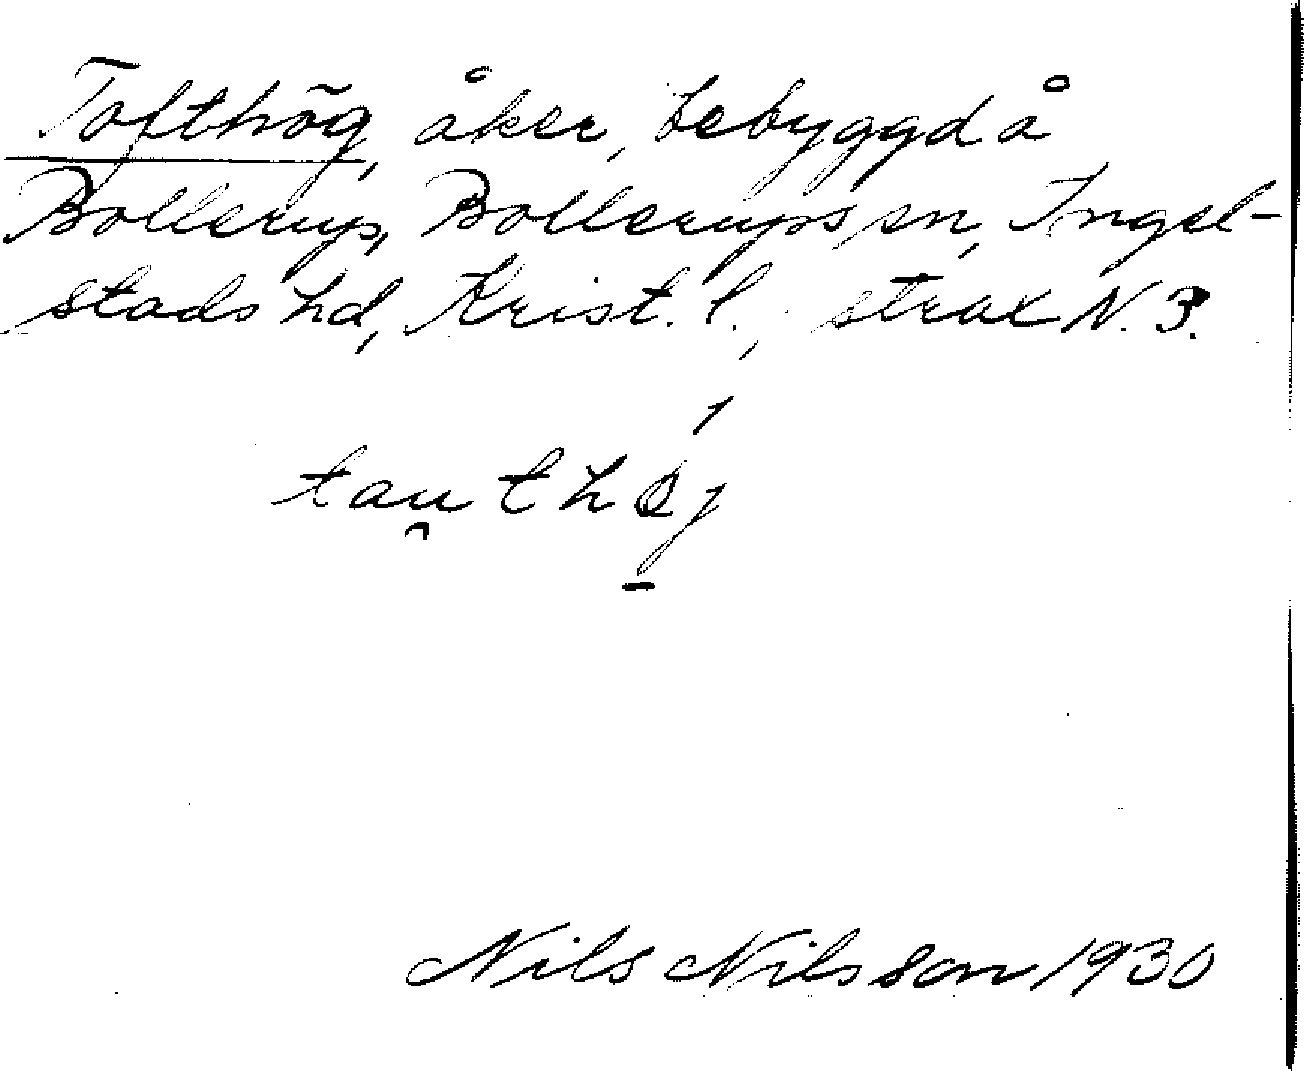 Tofthög, åker, bebyggd å
Bollerup, Bollerups sn, Ingel-
stads hd, Krist. l., strax N. B.
Nils Nilsson 1930